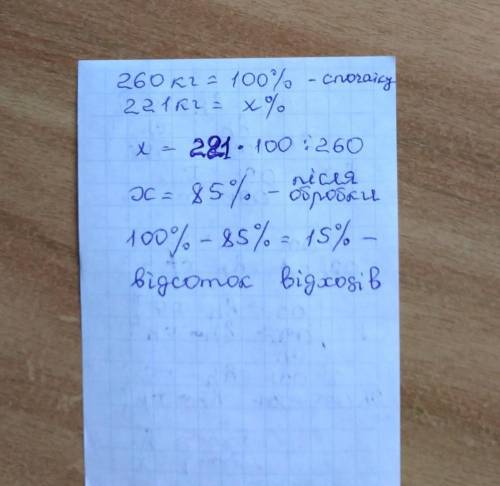 260 кг = 100% - спочатку
221 кг = x%
x = 221 · 100 : 260
x = 85% - після обробки
100% - 85% = 15% -
відсоток відходів